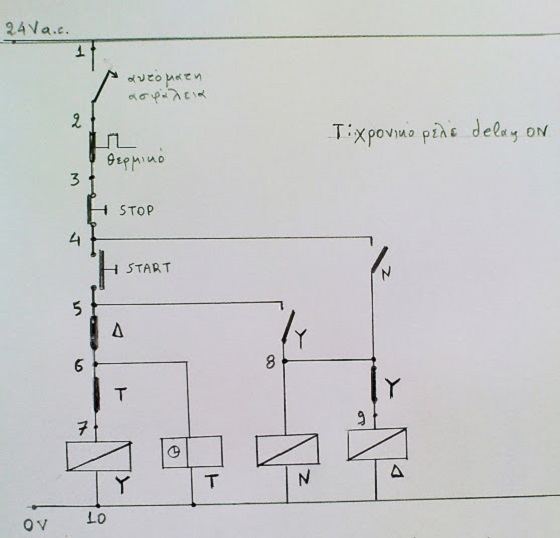 24Va.c.
1
αυτόματη
ασφάλεια
2
θερμικό
T: χρονικό ρελέ delay ON
3
STOP
4
N
START
5
Δ
Y
6
8
T
Y
7
9
Y
T
N
Δ
0V
10